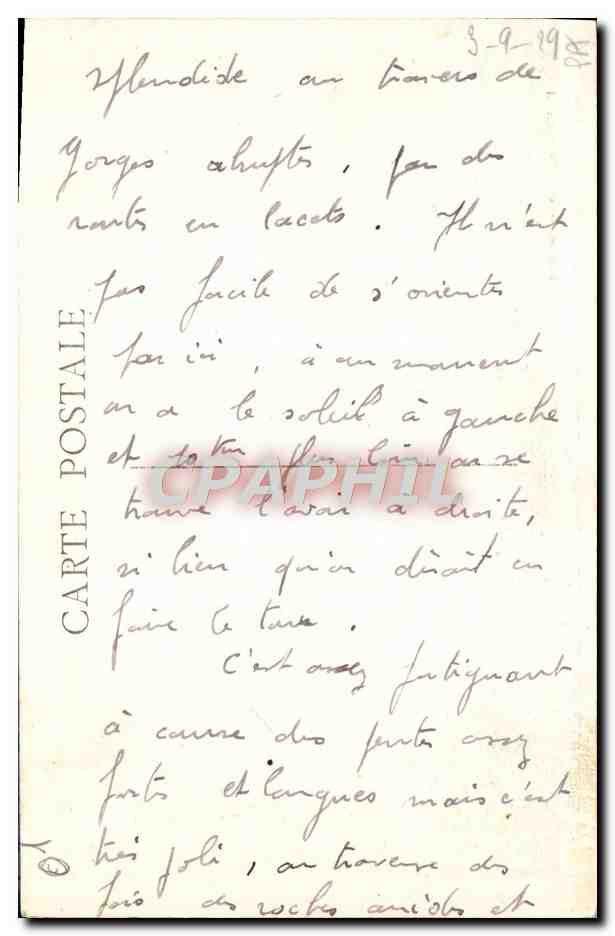 3-9-29
splendide au travers de
Gorges abruptes, par des
routes en lacets. Il n'est
pas facile de s'orienter
par ici, à un moment
on a le soleil à gauche
et 10 km plus loin on se
trouve l'avoir à droite,
si bien qu'on dirait en
faire le tour.
C'est assez fatiguant
à cause des pentes assez
fortes et longues mais c'est
très joli, on traverse des
fois des roches arides et
CARTE POSTALE
CPAPHIL